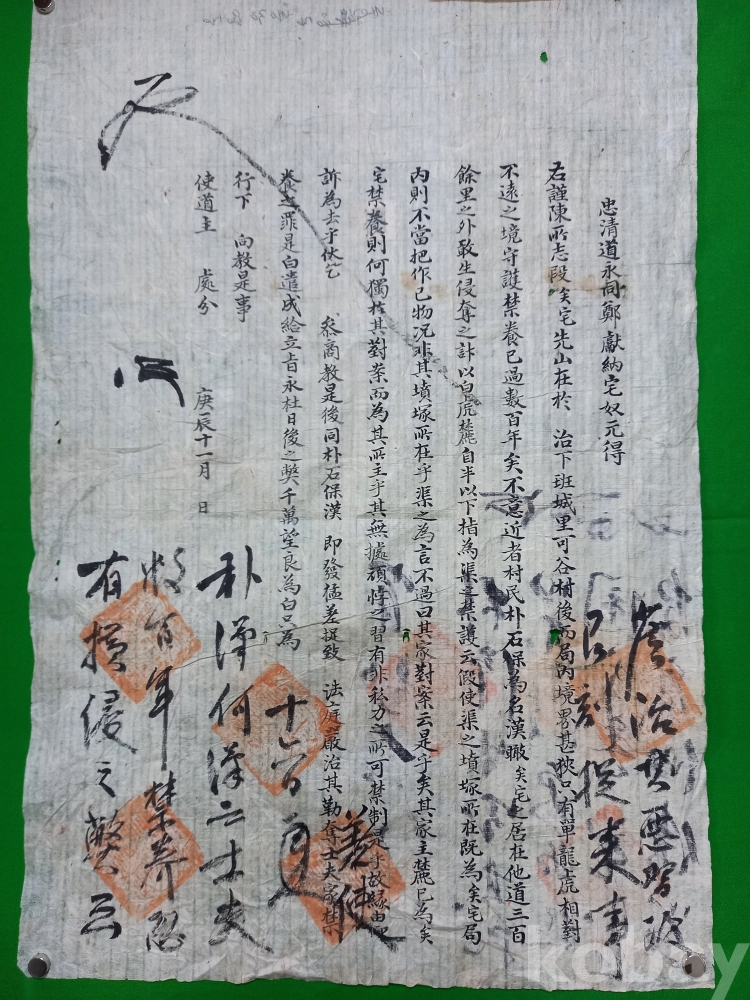 忠清道永同鄭獻納宅奴元得
右謹陳所志段矣宅先山在於 治下班城里可谷村後而局內境界甚狹只有單龍虎相對
不遠之境守護禁養已過數百年矣不意近者村民朴石保為名漢瞰矣宅之居在他道三百
餘里之外敢生侵奪之計以白虎麓自半以下指為渠之禁護云假使渠之墳塚所在既為矣宅局
內則不當把作己物况非其墳塚所在乎渠之為言不過曰其家對案云是乎矣其家主麓已為矣
宅禁養則何獨於其對案而為其所主乎其無據頑悖之習有非私力之所可禁制是乎故緣由
訴為去乎伏乞 叅商教是後同朴石保漢 即發猛差捉致 法庭嚴治其勒奪士夫家禁
養之罪是白遣成給立旨永杜日後之弊千萬望良為白只為
行下 向教是事
使道主 處分
庚辰十一月 日
朴漢何漢 士夫
數百年禁養
有損侵之弊
十六日
kobay